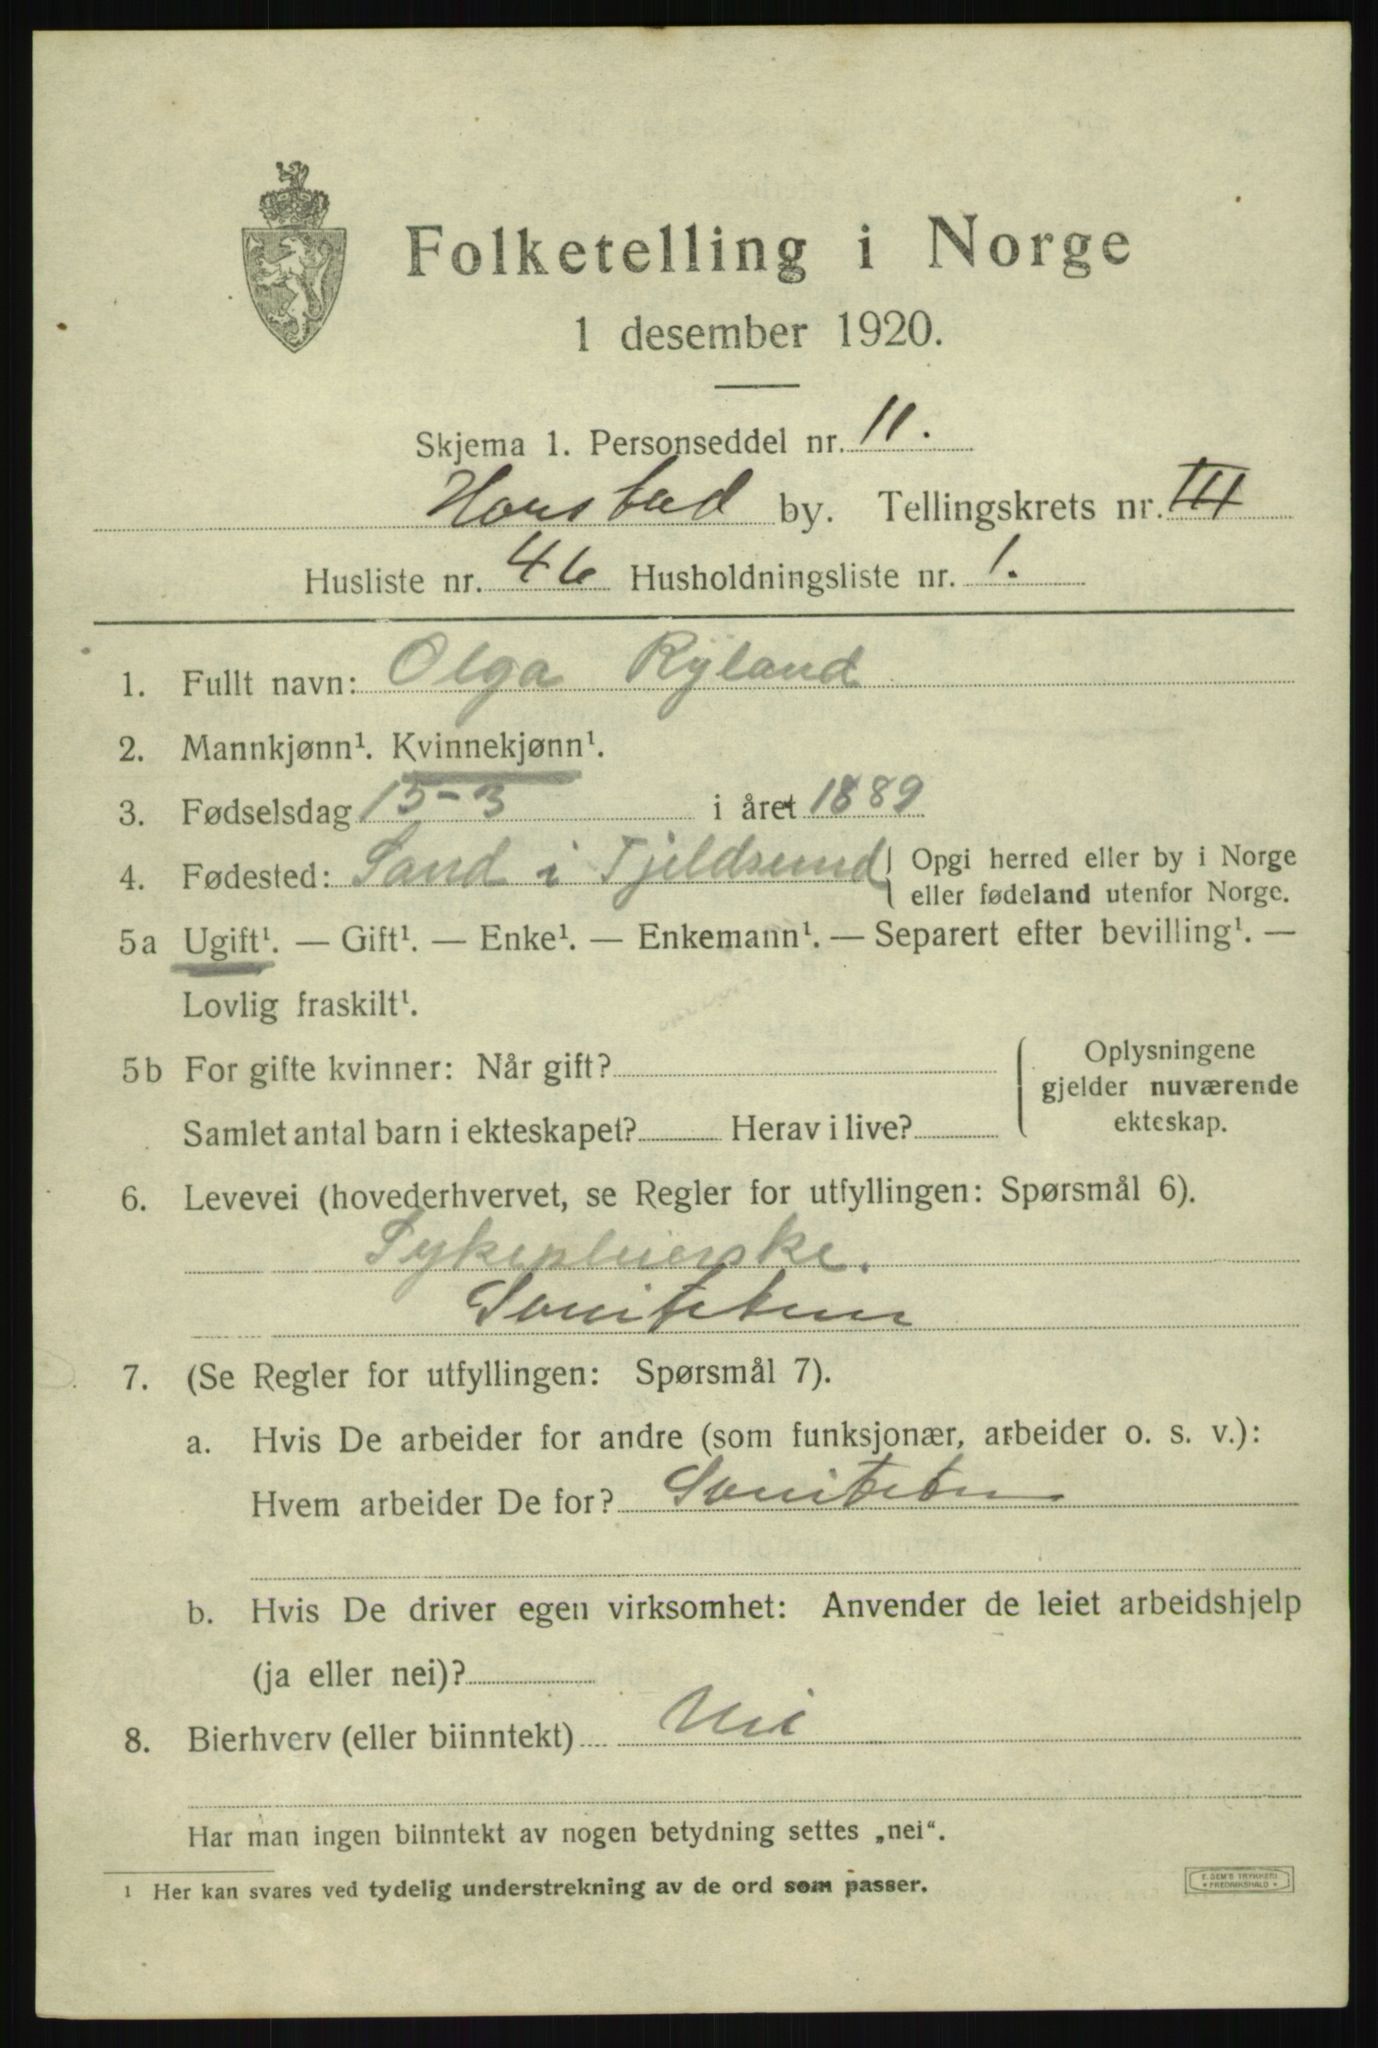 Folketelling i Norge
1 desember 1920.
Skjema 1. Personseddel nr. 11.
Harstad by. Tellingskrets nr. III
Husliste nr. 46 Husholdningsliste nr. 1.
1. Fullt navn: Olga Ryland
2. Mannkjønn¹. Kvinnekjønn¹.
3. Fødselsdag 15-3 i året 1889
4. Fødested: Sand i Tjeldsund { Opgi herred eller by i Norge
eller fødeland utenfor Norge.
5a Ugift¹. — Gift¹. — Enke¹. — Enkemann¹. — Separert efter bevilling¹. —
Lovlig fraskilt¹.
5b For gifte kvinner: Når gift?
Samlet antal barn i ekteskapet? Herav i live?
{ Oplysningene
gjelder nuværende
ekteskap.
6. Levevei (hovederhvervet, se Regler for utfyllingen: Spørsmål 6).
Sykepleierske.
Saniteten
7. (Se Regler for utfyllingen: Spørsmål 7).
a. Hvis De arbeider for andre (som funksjonær, arbeider o. s. v.):
Hvem arbeider De for? Saniteten
b. Hvis De driver egen virksomhet: Anvender de leiet arbeidshjelp
(ja eller nei)?
8. Bierhverv (eller biinntekt) Nei
Har man ingen biinntekt av nogen betydning settes „nei".
1 Her kan svares ved tydelig understrekning av de ord som passer.
E. SEM'S TRYKKERI
* FREDRIKSHALD *